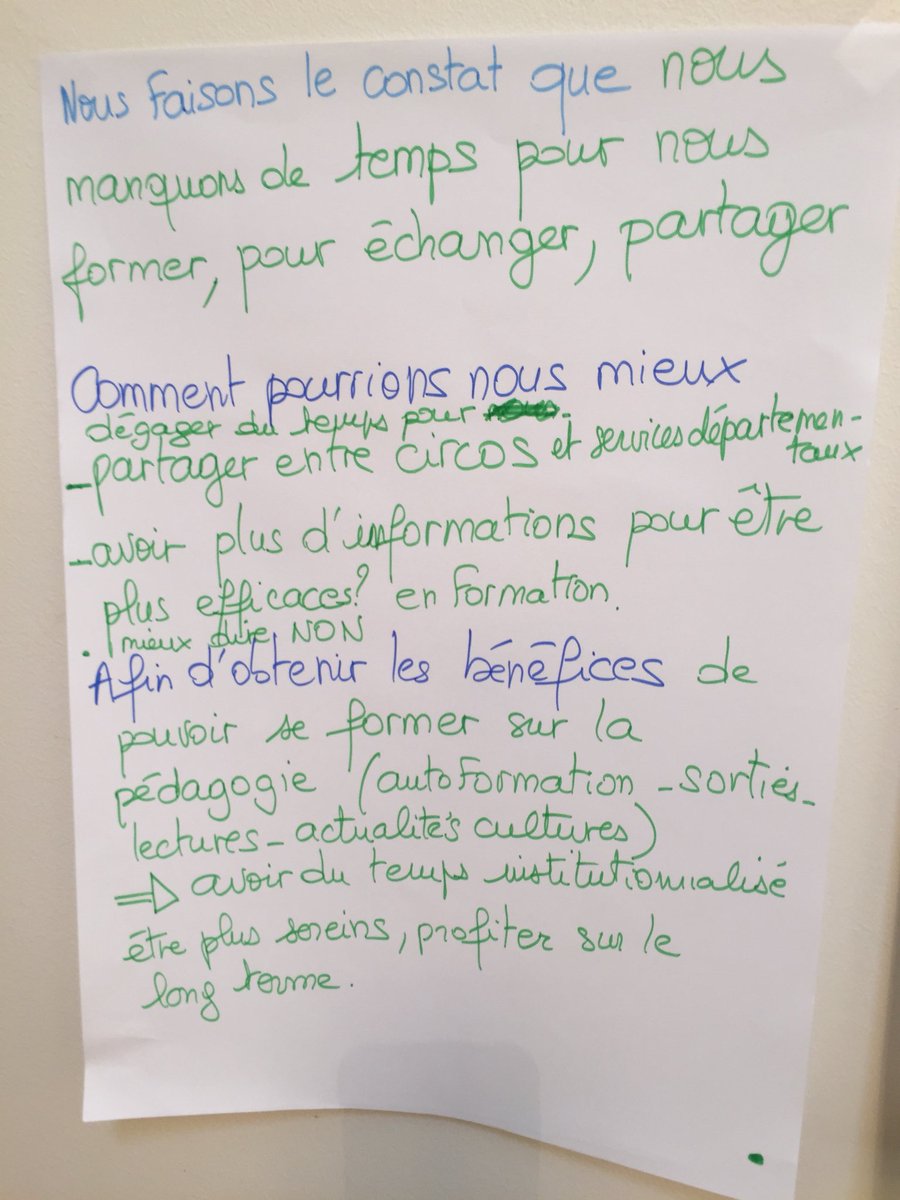 Nous Faisons le constat que nous
manquons de temps pour nous
former, pour échanger, partager
Comment pourrions nous mieux
dégager du temps pour
-partager entre circos et services départemen-
taux
-avoir plus d'informations pour être
plus efficaces? en Formation.
. mieux dire NON
Afin d'obtenir les bénéfices de
pouvoir se former sur la
pédagogie (autoFormation - sorties-
lectures - actualités cultures)
⇒ avoir du temps institutionnalisé
être plus sereins, profiter sur le
long terme.